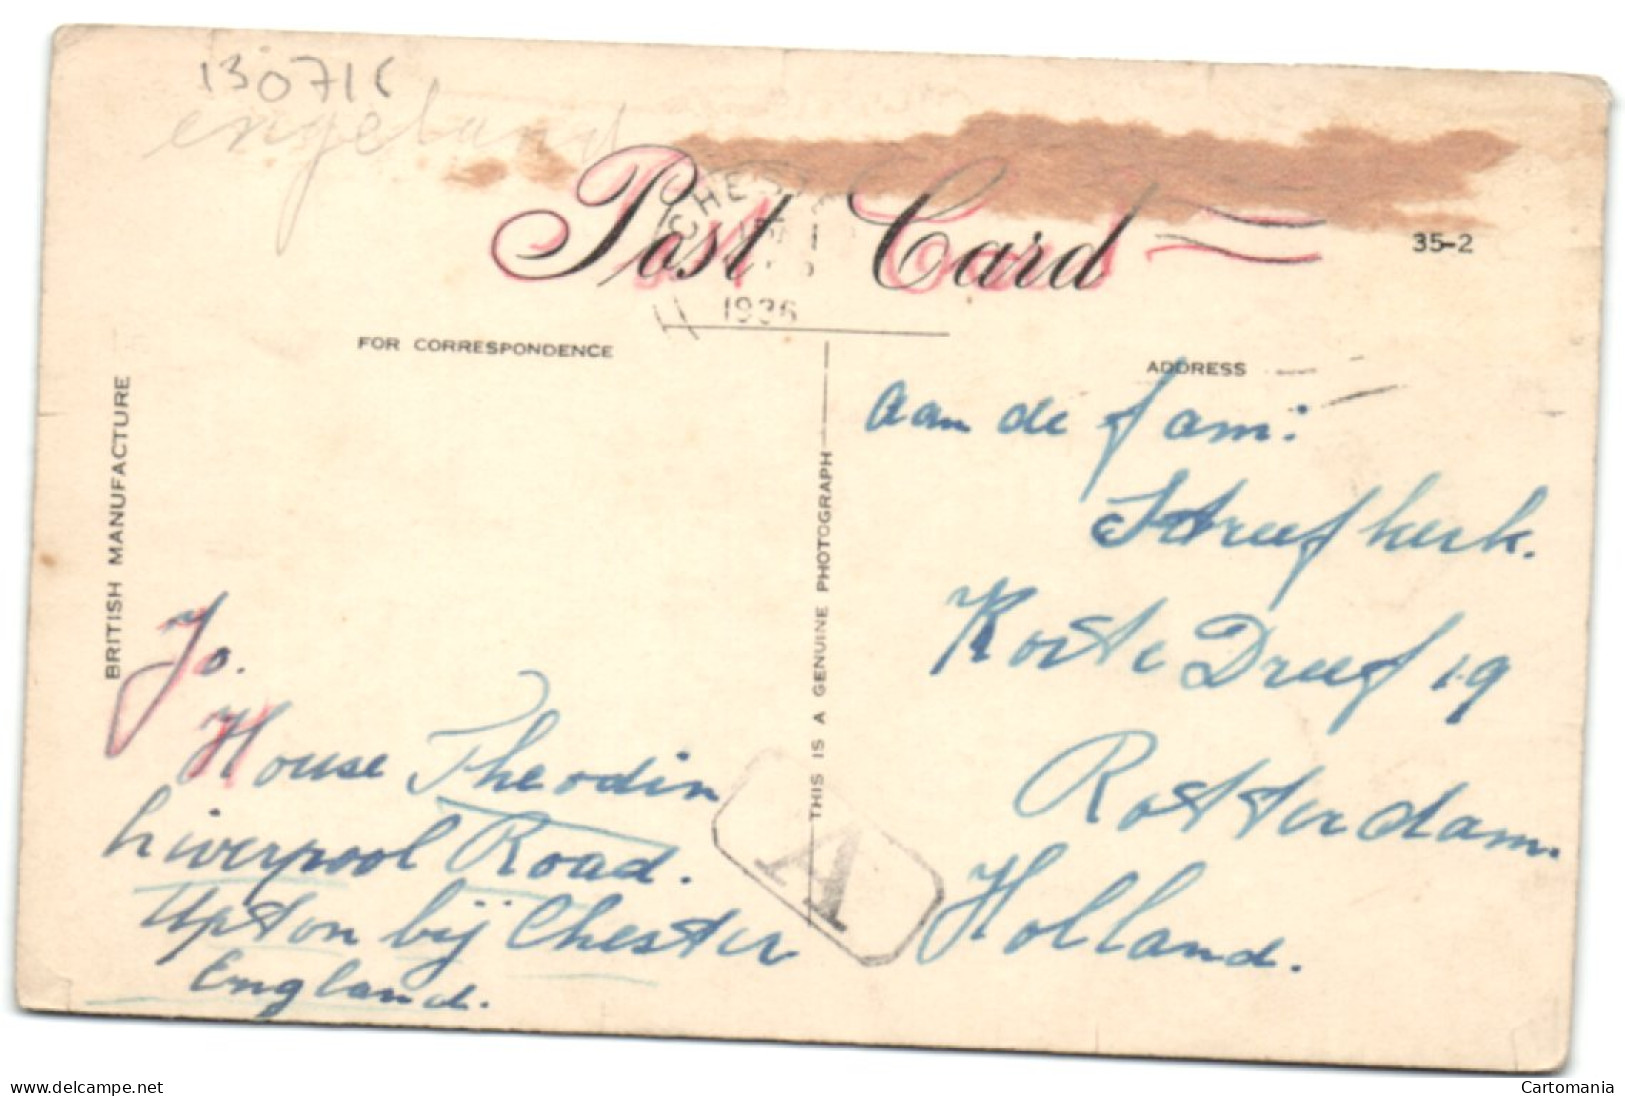 130716
engeland
Post Card
CHES
1936
35-2
FOR CORRESPONDENCE
ADDRESS
BRITISH MANUFACTURE
THIS IS A GENUINE PHOTOGRAPH
aan de fam:
Streefkerk.
Korte Dreef 19
Rotterdam.
Holland.
Jo.
House Theodin
Liverpool Road.
Upton bij Chester
England.
A
www.delcampe.net
Cartomania